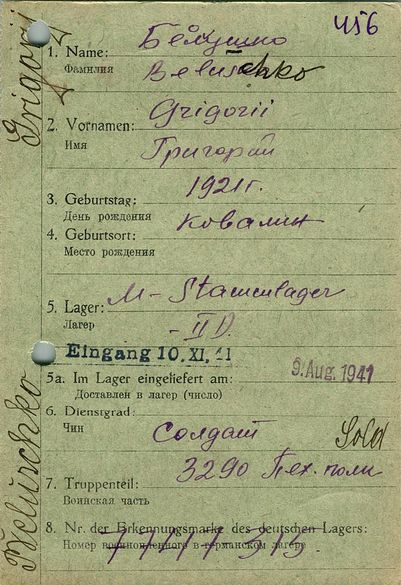 456
1. Name:
Фамилия
Beluschko
2. Vornamen: Grigorii
Имя Григорий
3. Geburtstag: 1921 г.
День рождения
4. Geburtsort: Ковалин
Место рождения
5. Lager: M-Stammlager
Лагерь - II D.
Eingang 10. XI. 41
9. Aug. 1941
5a. Im Lager eingeliefert am:
Доставлен в лагер (число)
6. Dienstgrad:
Чин Солдат Sold
7. Truppenteil: 3290 Пех. полк
Воинская часть
8. Nr. der Erkennungsmarke des deutschen Lagers:
Номер германском лагере
Grigorj
Beluschko